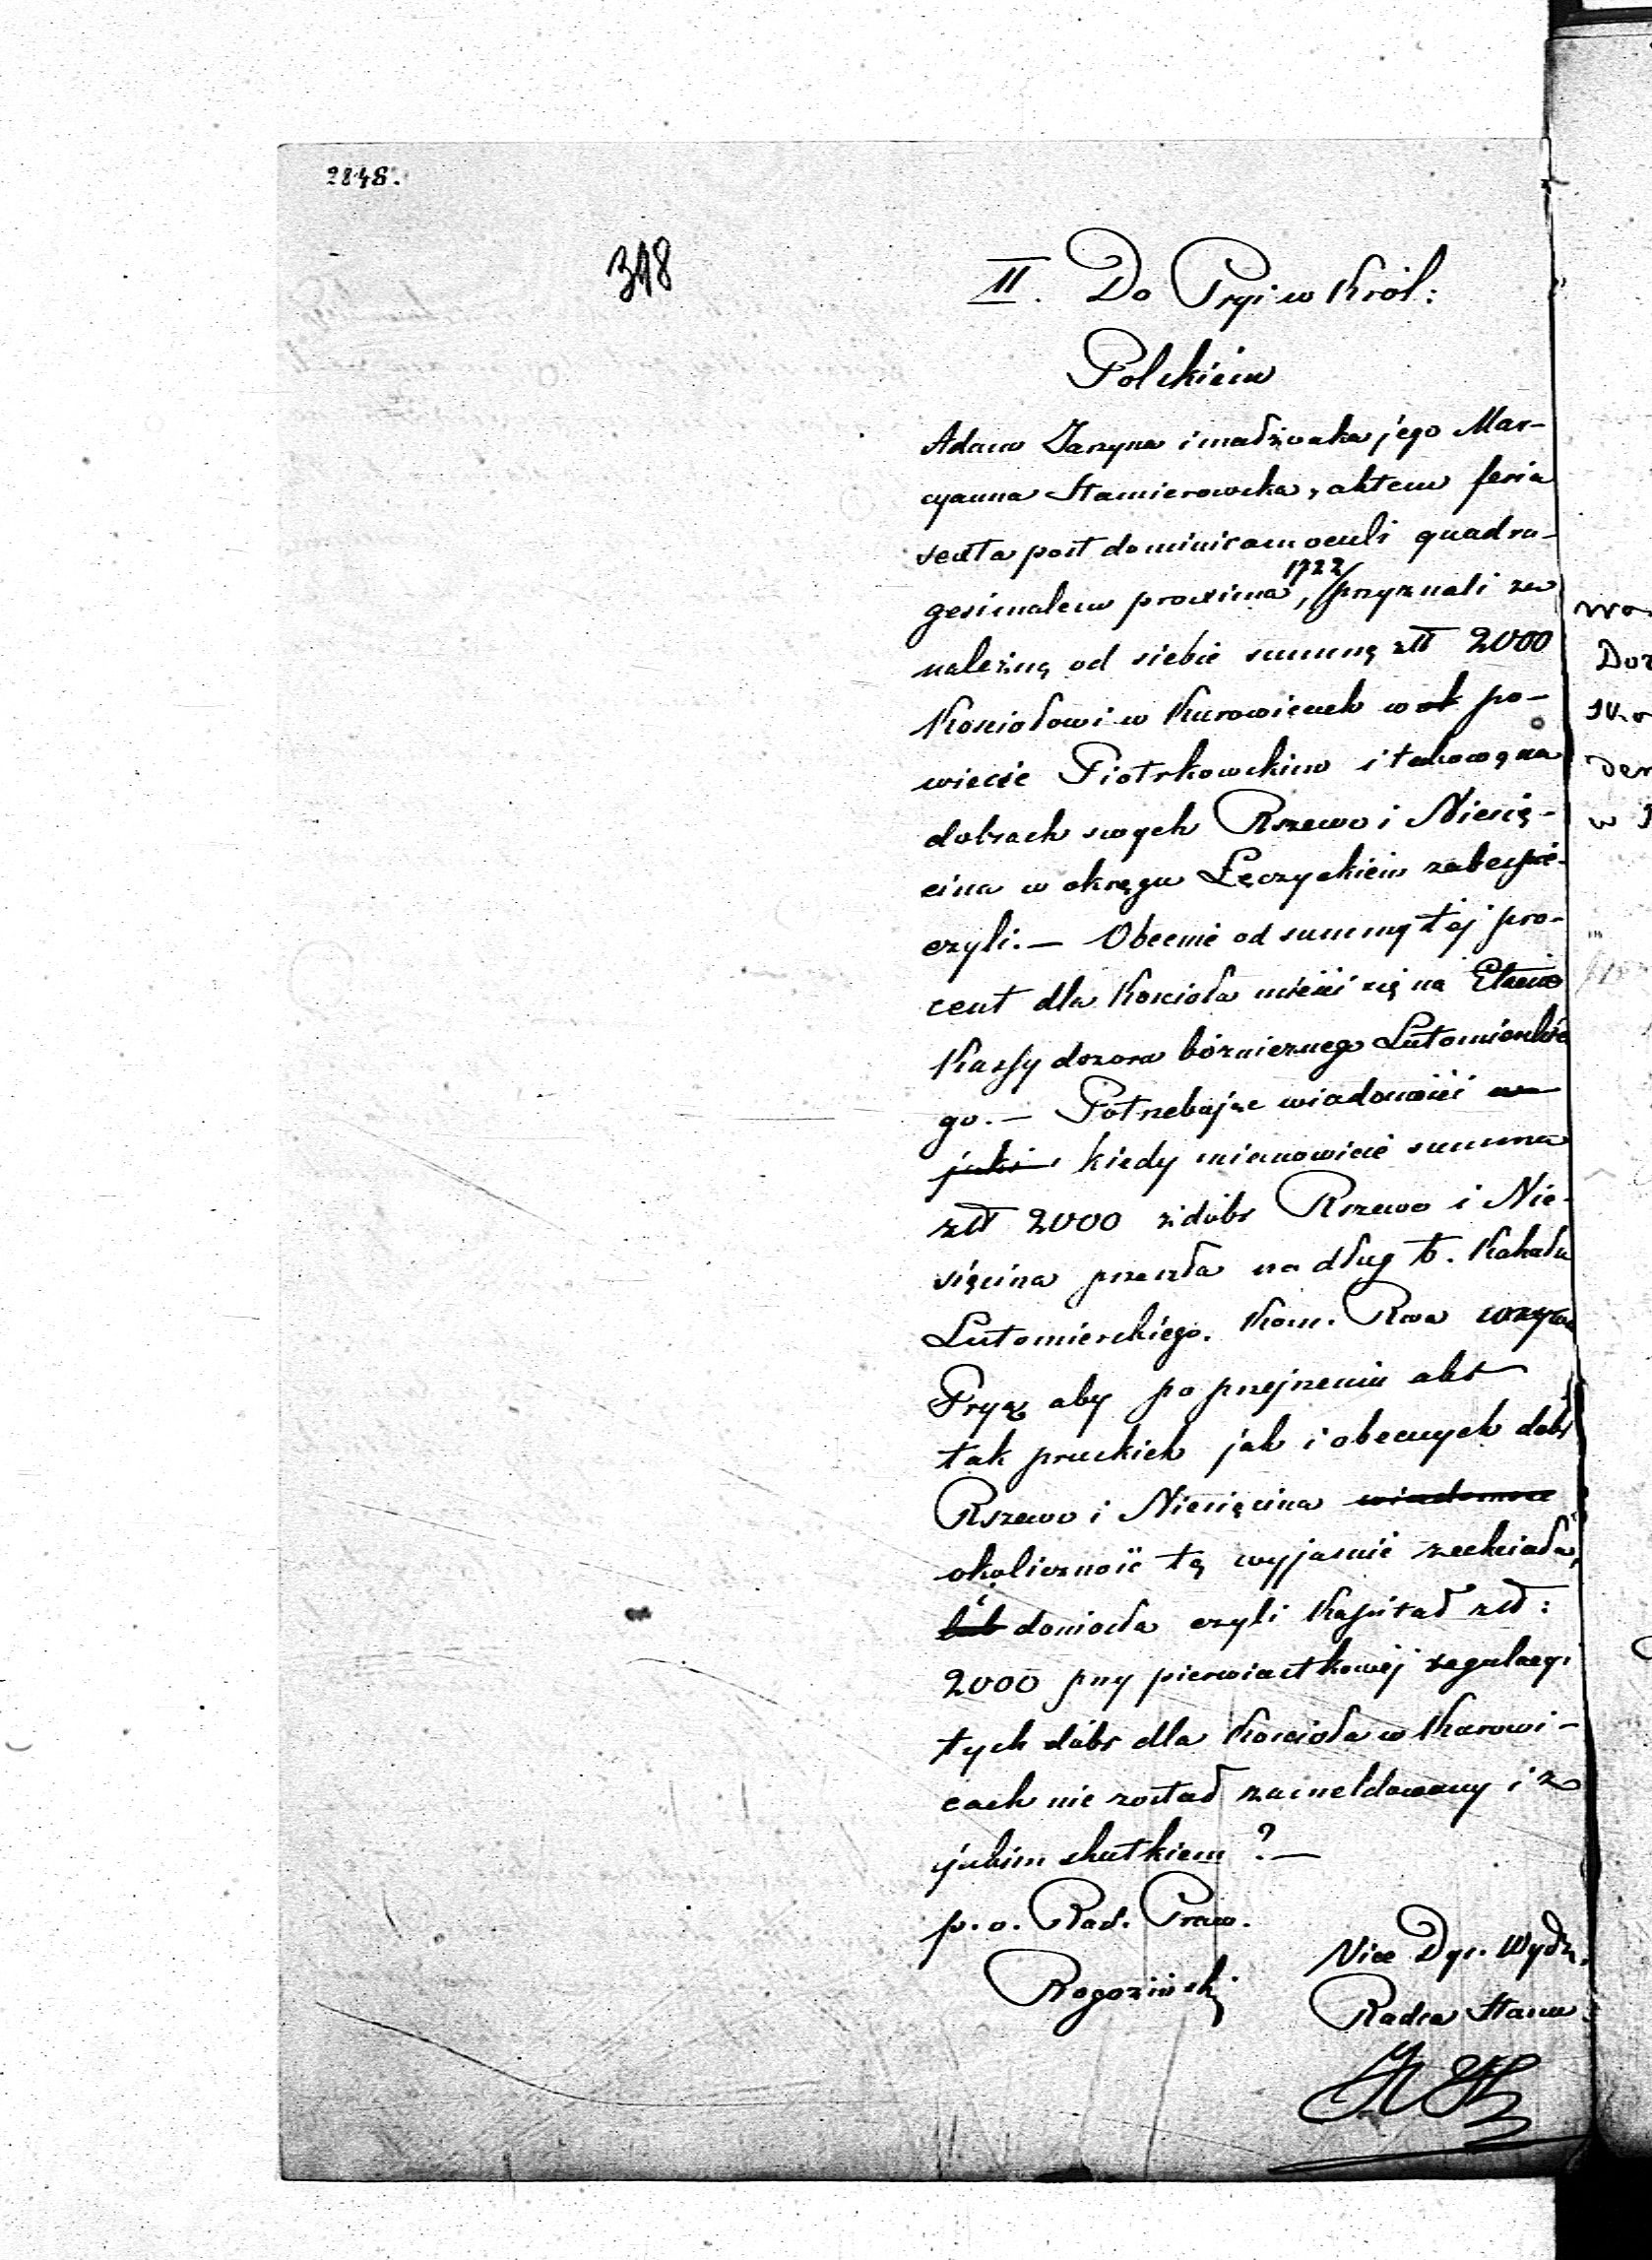 2848.
318
II. Do Pryi w Król:
Polskiém
Adam Jarzyna i małżonka jego Mar-
cyanna Stamierowska, aktem feria
sexta post dominicam oculi quadra-
gesimalem proxima, 1722 przyznali za
należną od siebie summę złł 2000
Kościołowi w Kurowicach w po-
wiecie Piotrkowskim i takową na
dobrach swych Rszewo i Niesię-
cina w okręgu Łęczyckiém zabezpie-
czyli. — Obecnie od summy téj pro-
cent dla Kościoła mieści się na Etacie
Kassy dozoru bóżnicznego Lutomierskie
go. — Potrzebując wiadomości
jaki kiedy mianowicie summa
złł 2000 z dóbr Rszewo i Nie-
sięcina przeszła na dług b. Kahału
Lutomierskiego. Kom. Rwa wzywa
Pryą aby po przejrzeniu akt
tak pruskich jak i obecnych dóbr
Rszewo i Niesięcina wiadomość
okoliczność tę wyjaśnić zechciała,
lub i doniosła czyli Kapitał złł:
2000 przy pierwiastkowéj regulacyi
tych dóbr dla Kościoła w Kurowi-
cach nie został zameldowany i z
jakim skutkiem ? —
p. o. Rad. Praw.
Rogoziński
Vice Dyr. Wydz.
Radca Stanu
wo
Doz
den
w